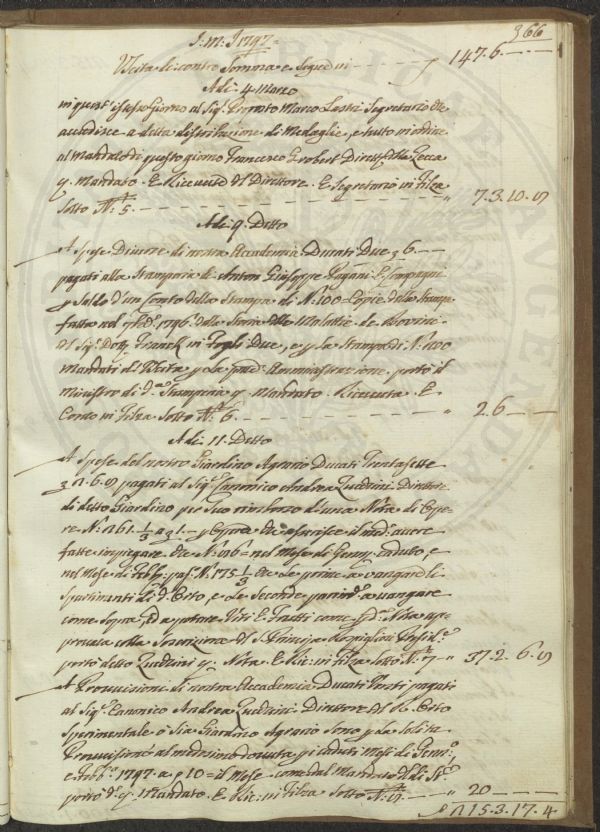 366
J: M: J 1797=
Uscita di contro Somma e Segue in 147.6.——
Adi: 4 Marzo
in quest' istesso Giorno al Sig: Proposto Marco Lastri Segretario che
accudisce a detta distribuzione di Medaglie, e tutto in ordine
al Mandato di questo giorno Francesco Grobert Dirett: della Zecca
p. Mandato. E Ricevute del Direttore. E Segretario in Filza
Sotto N: 5. 7.3.10.9
Adi: 9. Detto
A Spese Diverse di nostra Accademia Ducati Due 6.——
pagati alla Stamperia di Anton Giuseppe Pagani. E Compagni
p Saldo d'un Conto della Stampa di N: 100= Copie della Stampa
fatta nel 1796. della Storia delle Malattie de Bovini
del Sig: Dott: Franck in Fogli Due, e p la Stampa di N:
Mandati di Uscita p la Amministrazione. portò il
Ministro di d.a Stamperia p. Mandato. Ricevuta. E
Conto in Filza Sotto N: 6. 2.6.——
Adi: 11. Detto
A Spese del nostro Giardino Agrario Ducati Trentasette
pagati al Sig: Canonico Andrea Zucchini. Direttore
di detto Giardino per Suo rimborso d'una Nota di Ope
re N: 161. 1/3 a che asserisce il med: avere
fatte impiegare che N: nel Mese di Genn: caduto, e
nel Mese di Febb: pas: N: 175 1/3 che Le prime a vangare li
Spartimenti di d.o Orto, e Le Seconde a vangare
come Sopra, ed a potare Viti E Frutti come p d.a Nota ap:
provata colla Soscrizione del S. Principe Rospigliosi
portò detto Zucchini p. Nota. E Ric: in Filza Sotto N: 7 37.2.6.9
A Provvisioni di nostra Accademia Ducati Venti pagati
al Sig: Canonico Andrea Zucchini. Direttore del d.o Orto
Sperimentale o Sia Giardino Agrario Sono p la Solita
Provvisione al medesimo dovuta p i caduti Mesi di Genn:
e Febb: 1797. a 10= il Mese. come dal Mandato
portò d.o p. Mandato. E Ric: in Filza Sotto N: 20 ——
215.3.17.4